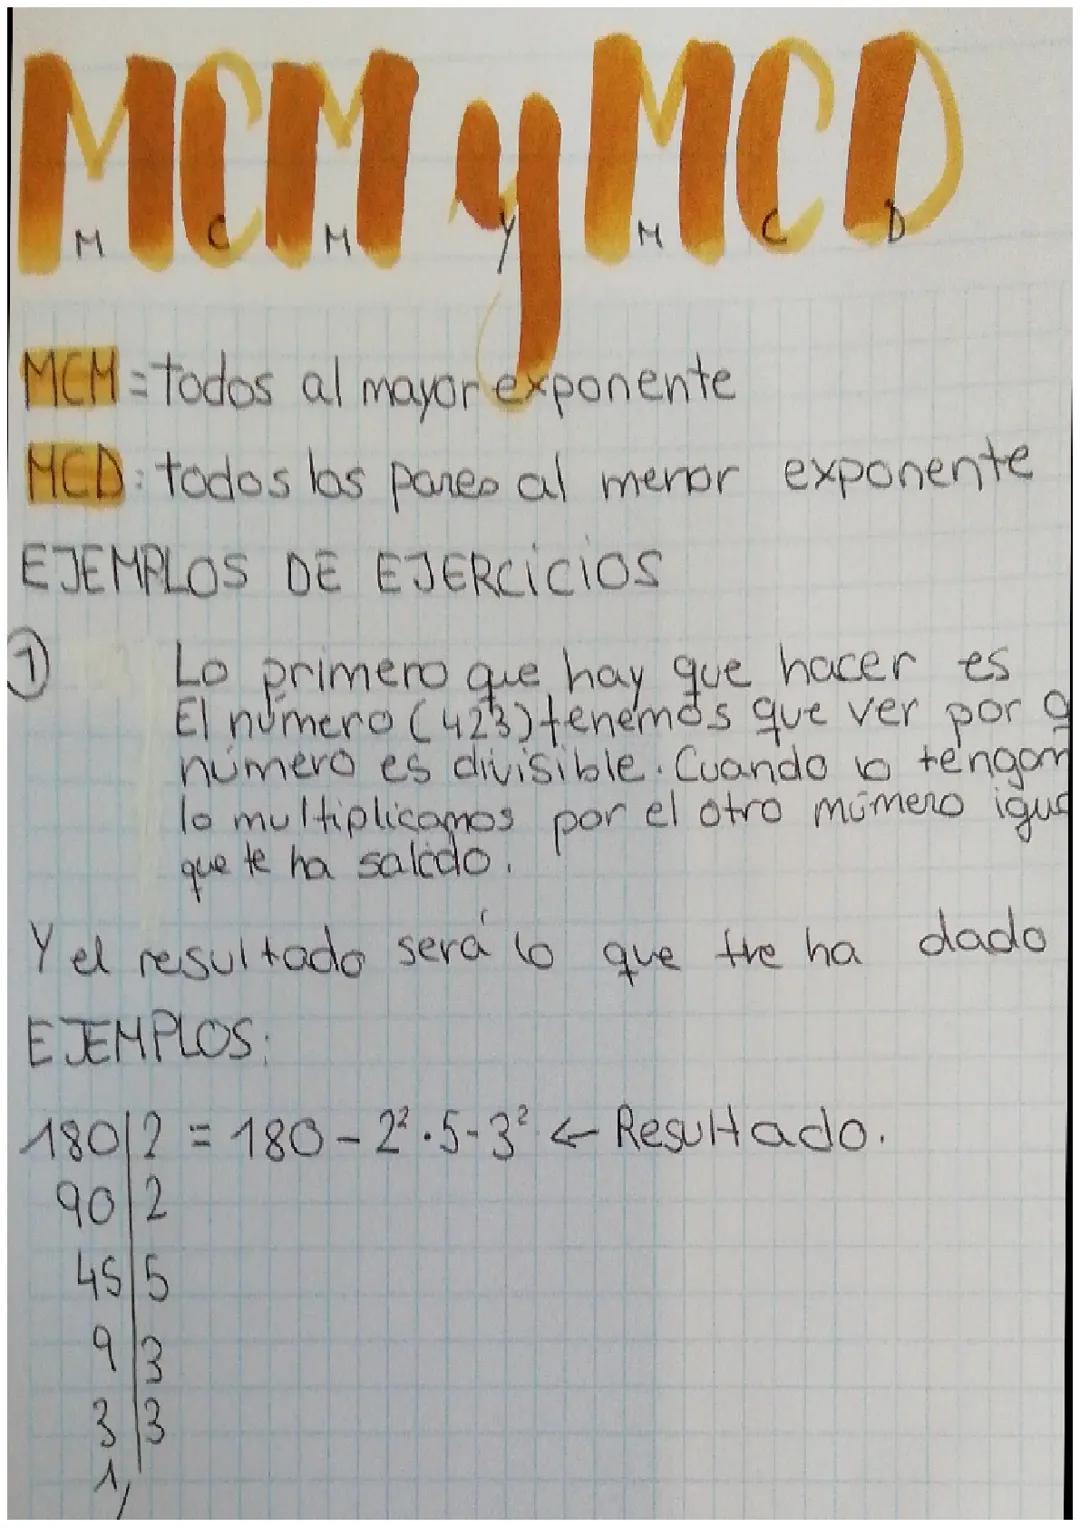 MCM y MCD
M C M Y M C D
MCM = todos al mayor exponente
MCD: todos los pares al menor exponente
EJEMPLOS DE EJERCICIOS
1 Lo primero que hay que hacer es
El número (423) tenemos que ver por q
número es divisible. Cuando lo tengam
lo multiplicamos por el otro número igua
que te ha salido.
Y el resultado será lo que tre ha dado
EJEMPLOS:
180|2 = 180 - 2² · 5 - 3² ← Resultado.
90|2
45|5
9|3
3|3
1